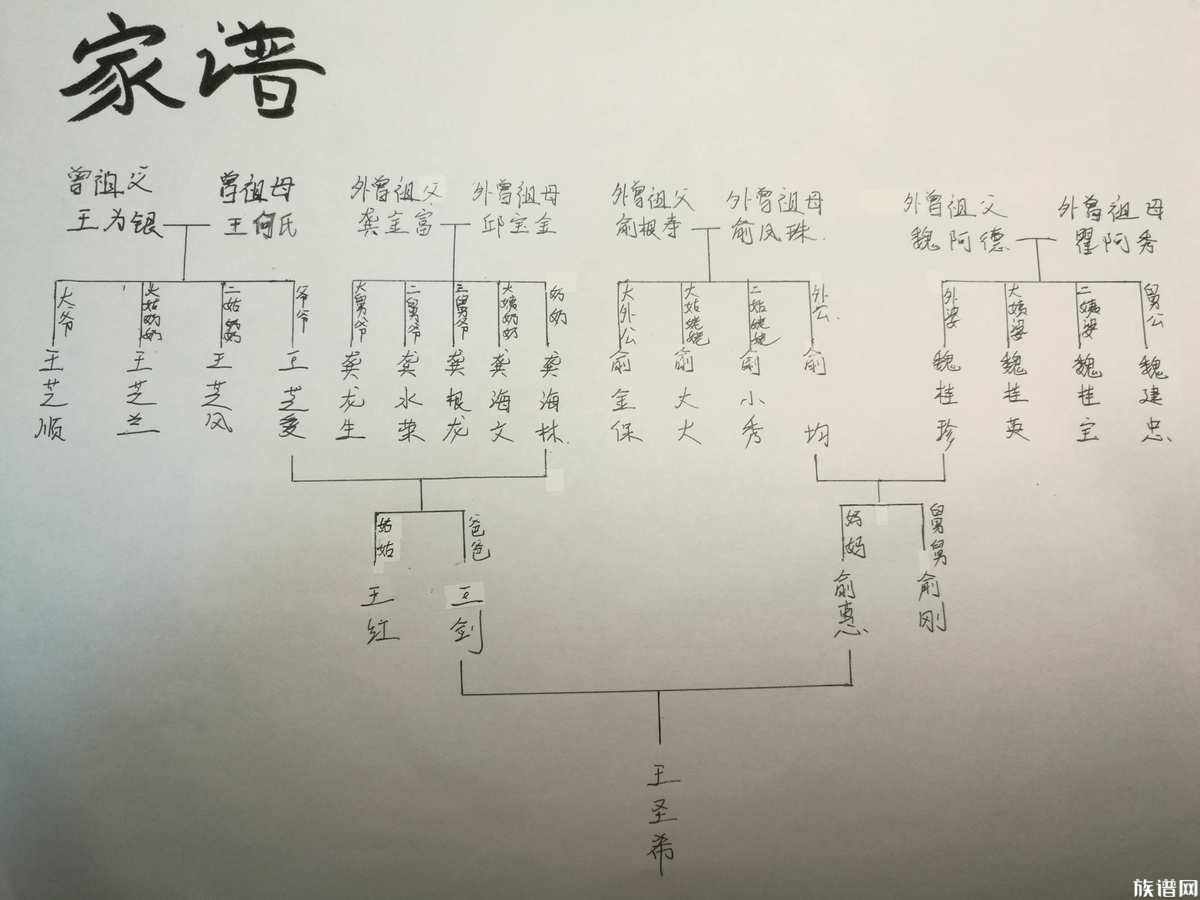 家谱
曾祖父 曾祖母 外曾祖父 外曾祖母 外曾祖父 外曾祖母 外曾祖父 外曾祖母
王为银 王何氏 龚金富 邱宝金 俞根李 俞凤珠 魏阿德 瞿阿秀
大爷 王芝顺
大姑奶奶 王芝兰
二姑奶奶 王芝凤
爷爷 王芝
大舅爷 龚龙生
二舅爷 龚水荣
三舅爷 龚根龙
大姨奶奶 龚海文
奶奶 龚海林
大外公 俞金保
大姑姥姥 俞大大
二姑姥姥 俞小秀
外公 俞均
外婆 魏桂珍
大姨婆 魏桂英
二姨婆 魏桂宝
舅公 魏建忠
姑姑 王红
爸爸 王剑
妈妈 俞惠
舅舅 俞刚
王圣希
族谱网